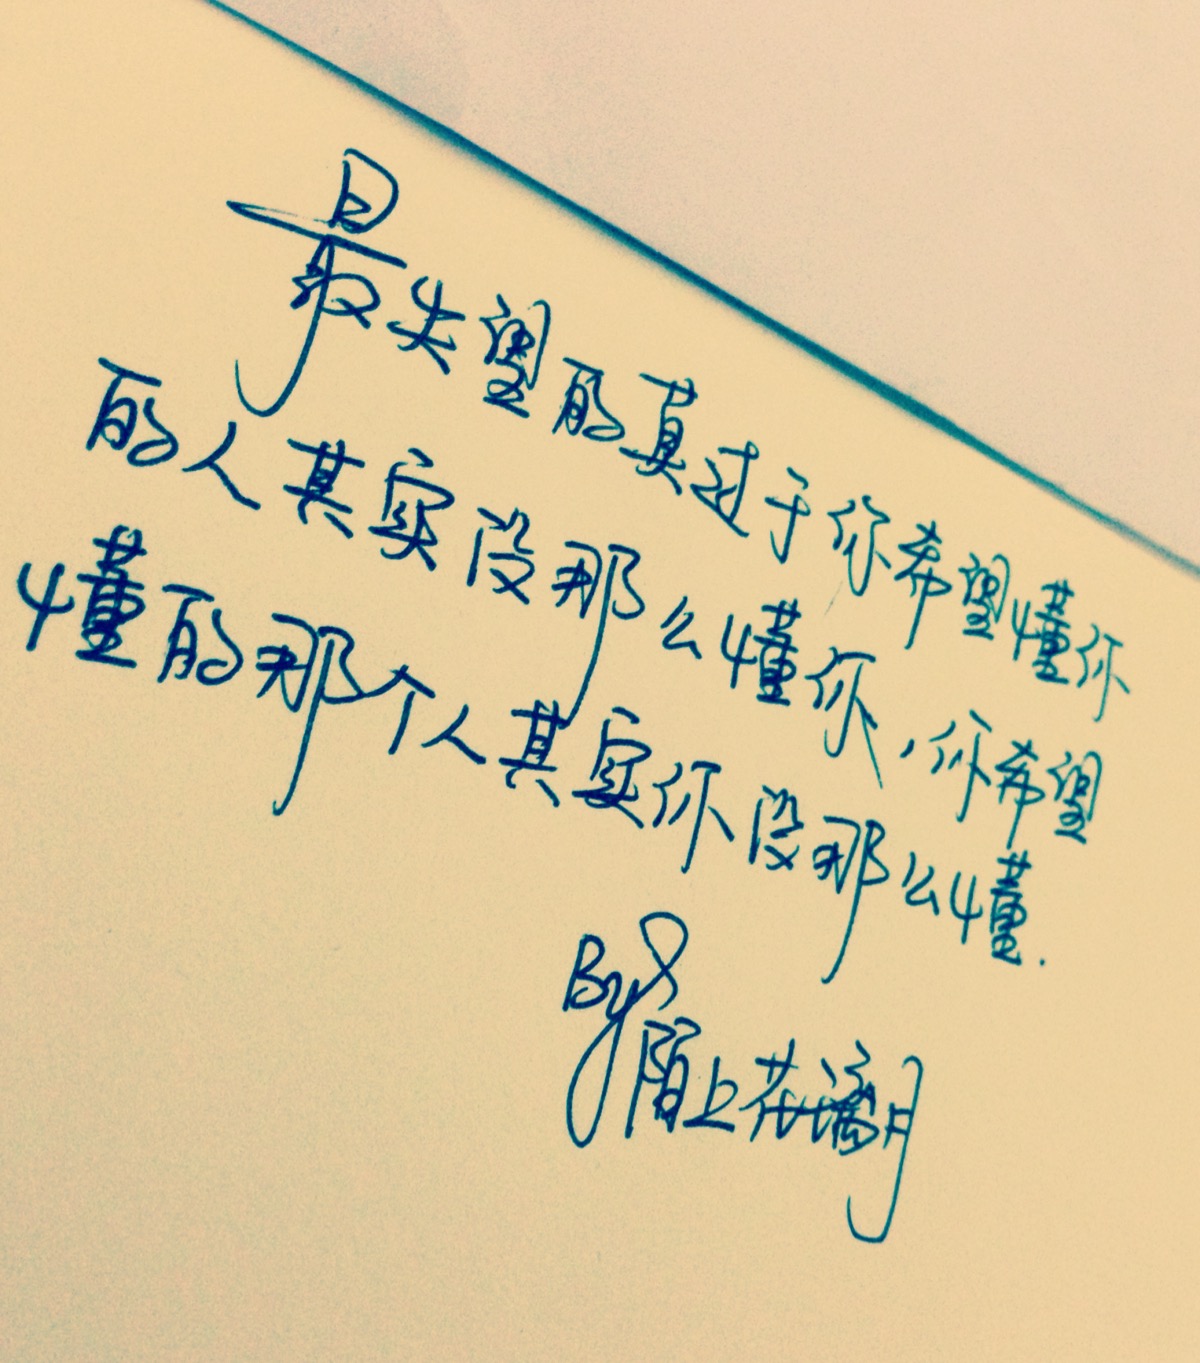 最失望的莫过于你希望懂你
的人其实没那么懂你,你希望
懂的那个人其实你没那么懂.
By
陌上花月